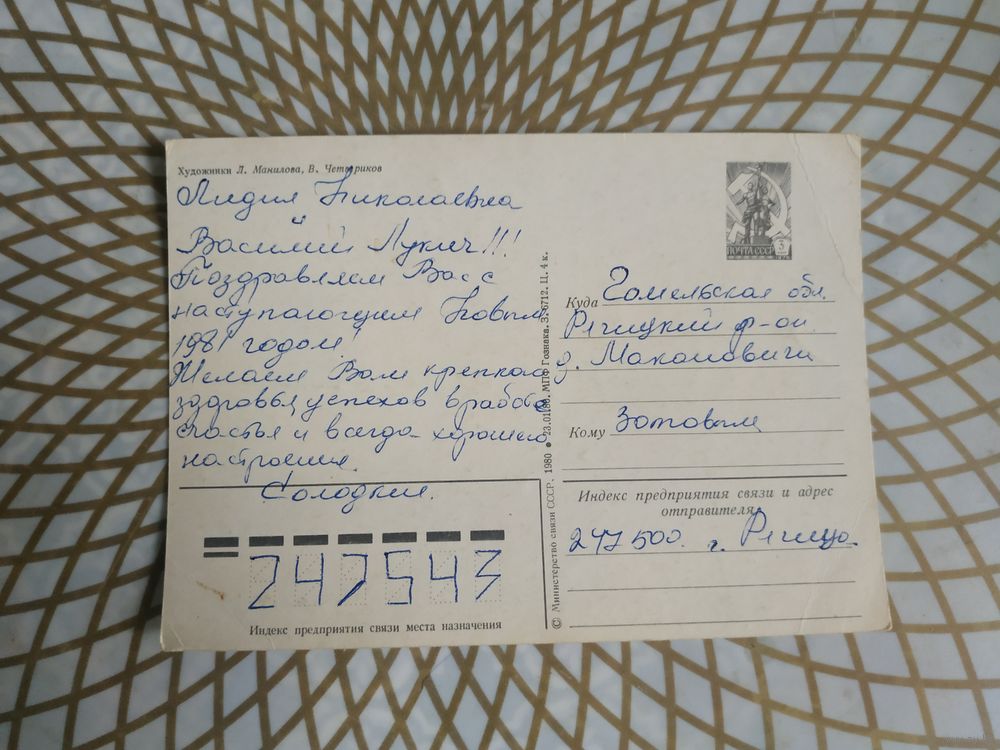 Художники Л. Манилова, В. Четвериков
Лидия Николаевна
Василий Лукич!!!
Поздравляем Вас с
наступающим Новым
1981 годом!
Желаем Вам крепкого
здоровья, успехов в работе,
счастья и всегда хорошего
настроения.
Солодкие.
247543
Индекс предприятия связи места назначения
© Министерство связи СССР, 1980 • 23.01.80. МПФ Гознака. З. 6712. Ц. 4 к.
ПОЧТА СССР 3
Куда Гомельская обл.
Речицкий р-он
д. Макановичи
Кому Зотовым
Индекс предприятия связи и адрес
отправителя
247500. г. Речица.